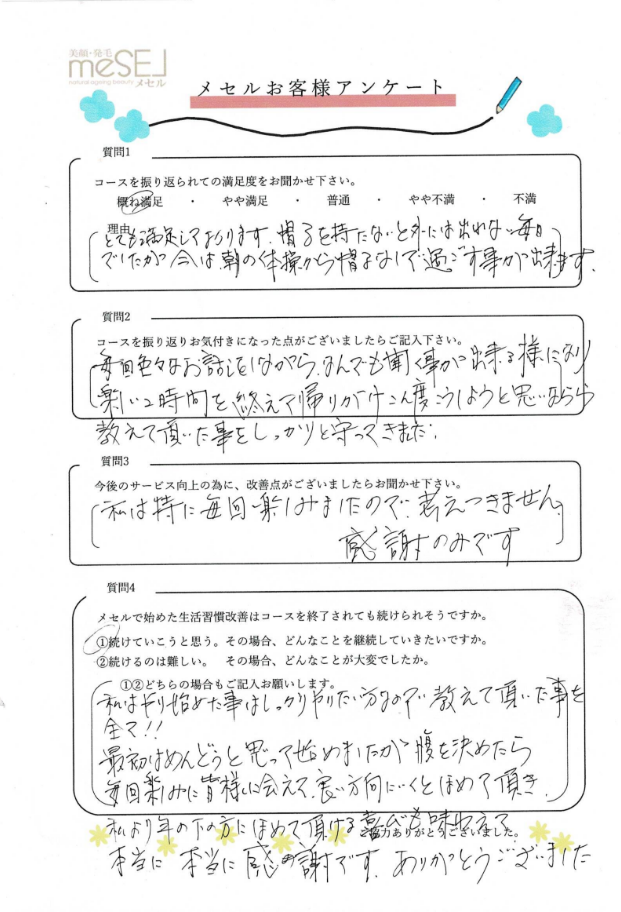 美顔・発毛
meSEL
natural ageing beauty メセル
メセルお客様アンケート
質問1
コースを振り返られての満足度をお聞かせ下さい。
概ね満足 ・ やや満足 ・ 普通 ・ やや不満 ・ 不満
理由
とても満足しております。帽子を持たないと外には出れない毎日
でしたが今は朝の体操から帽子なしで過ごす事が出来ます。
質問2
コースを振り返りお気付きになった点がございましたらご記入下さい。
毎回色々なお話しをしながら、なんでも聞く事が出来る様になり
楽しい2時間を終えて帰りがけ今度こうしようと思いながら
教えて頂いた事をしっかりと守ってきました。
質問3
今後のサービス向上の為に、改善点がございましたらお聞かせ下さい。
私は特に毎回楽しみましたので、考えつきません。
感謝のみです
質問4
メセルで始めた生活習慣改善はコースを終了されても続けられそうですか。
①続けていこうと思う。その場合、どんなことを継続していきたいですか。
②続けるのは難しい。 その場合、どんなことが大変でしたか。
①②どちらの場合もご記入お願いします。
私はやり始めた事はしっかりやりたい方なので教えて頂いた事を
全て!!
最初はめんどうと思って始めましたが腹を決めたら
毎回楽しみに皆様に会えて、良い方向にいくとほめて頂き、
私より年の下の方にほめて頂ける喜びも味わえて
ご協力ありがとうございました。
本当に 本当に 感謝です。ありがとうございました